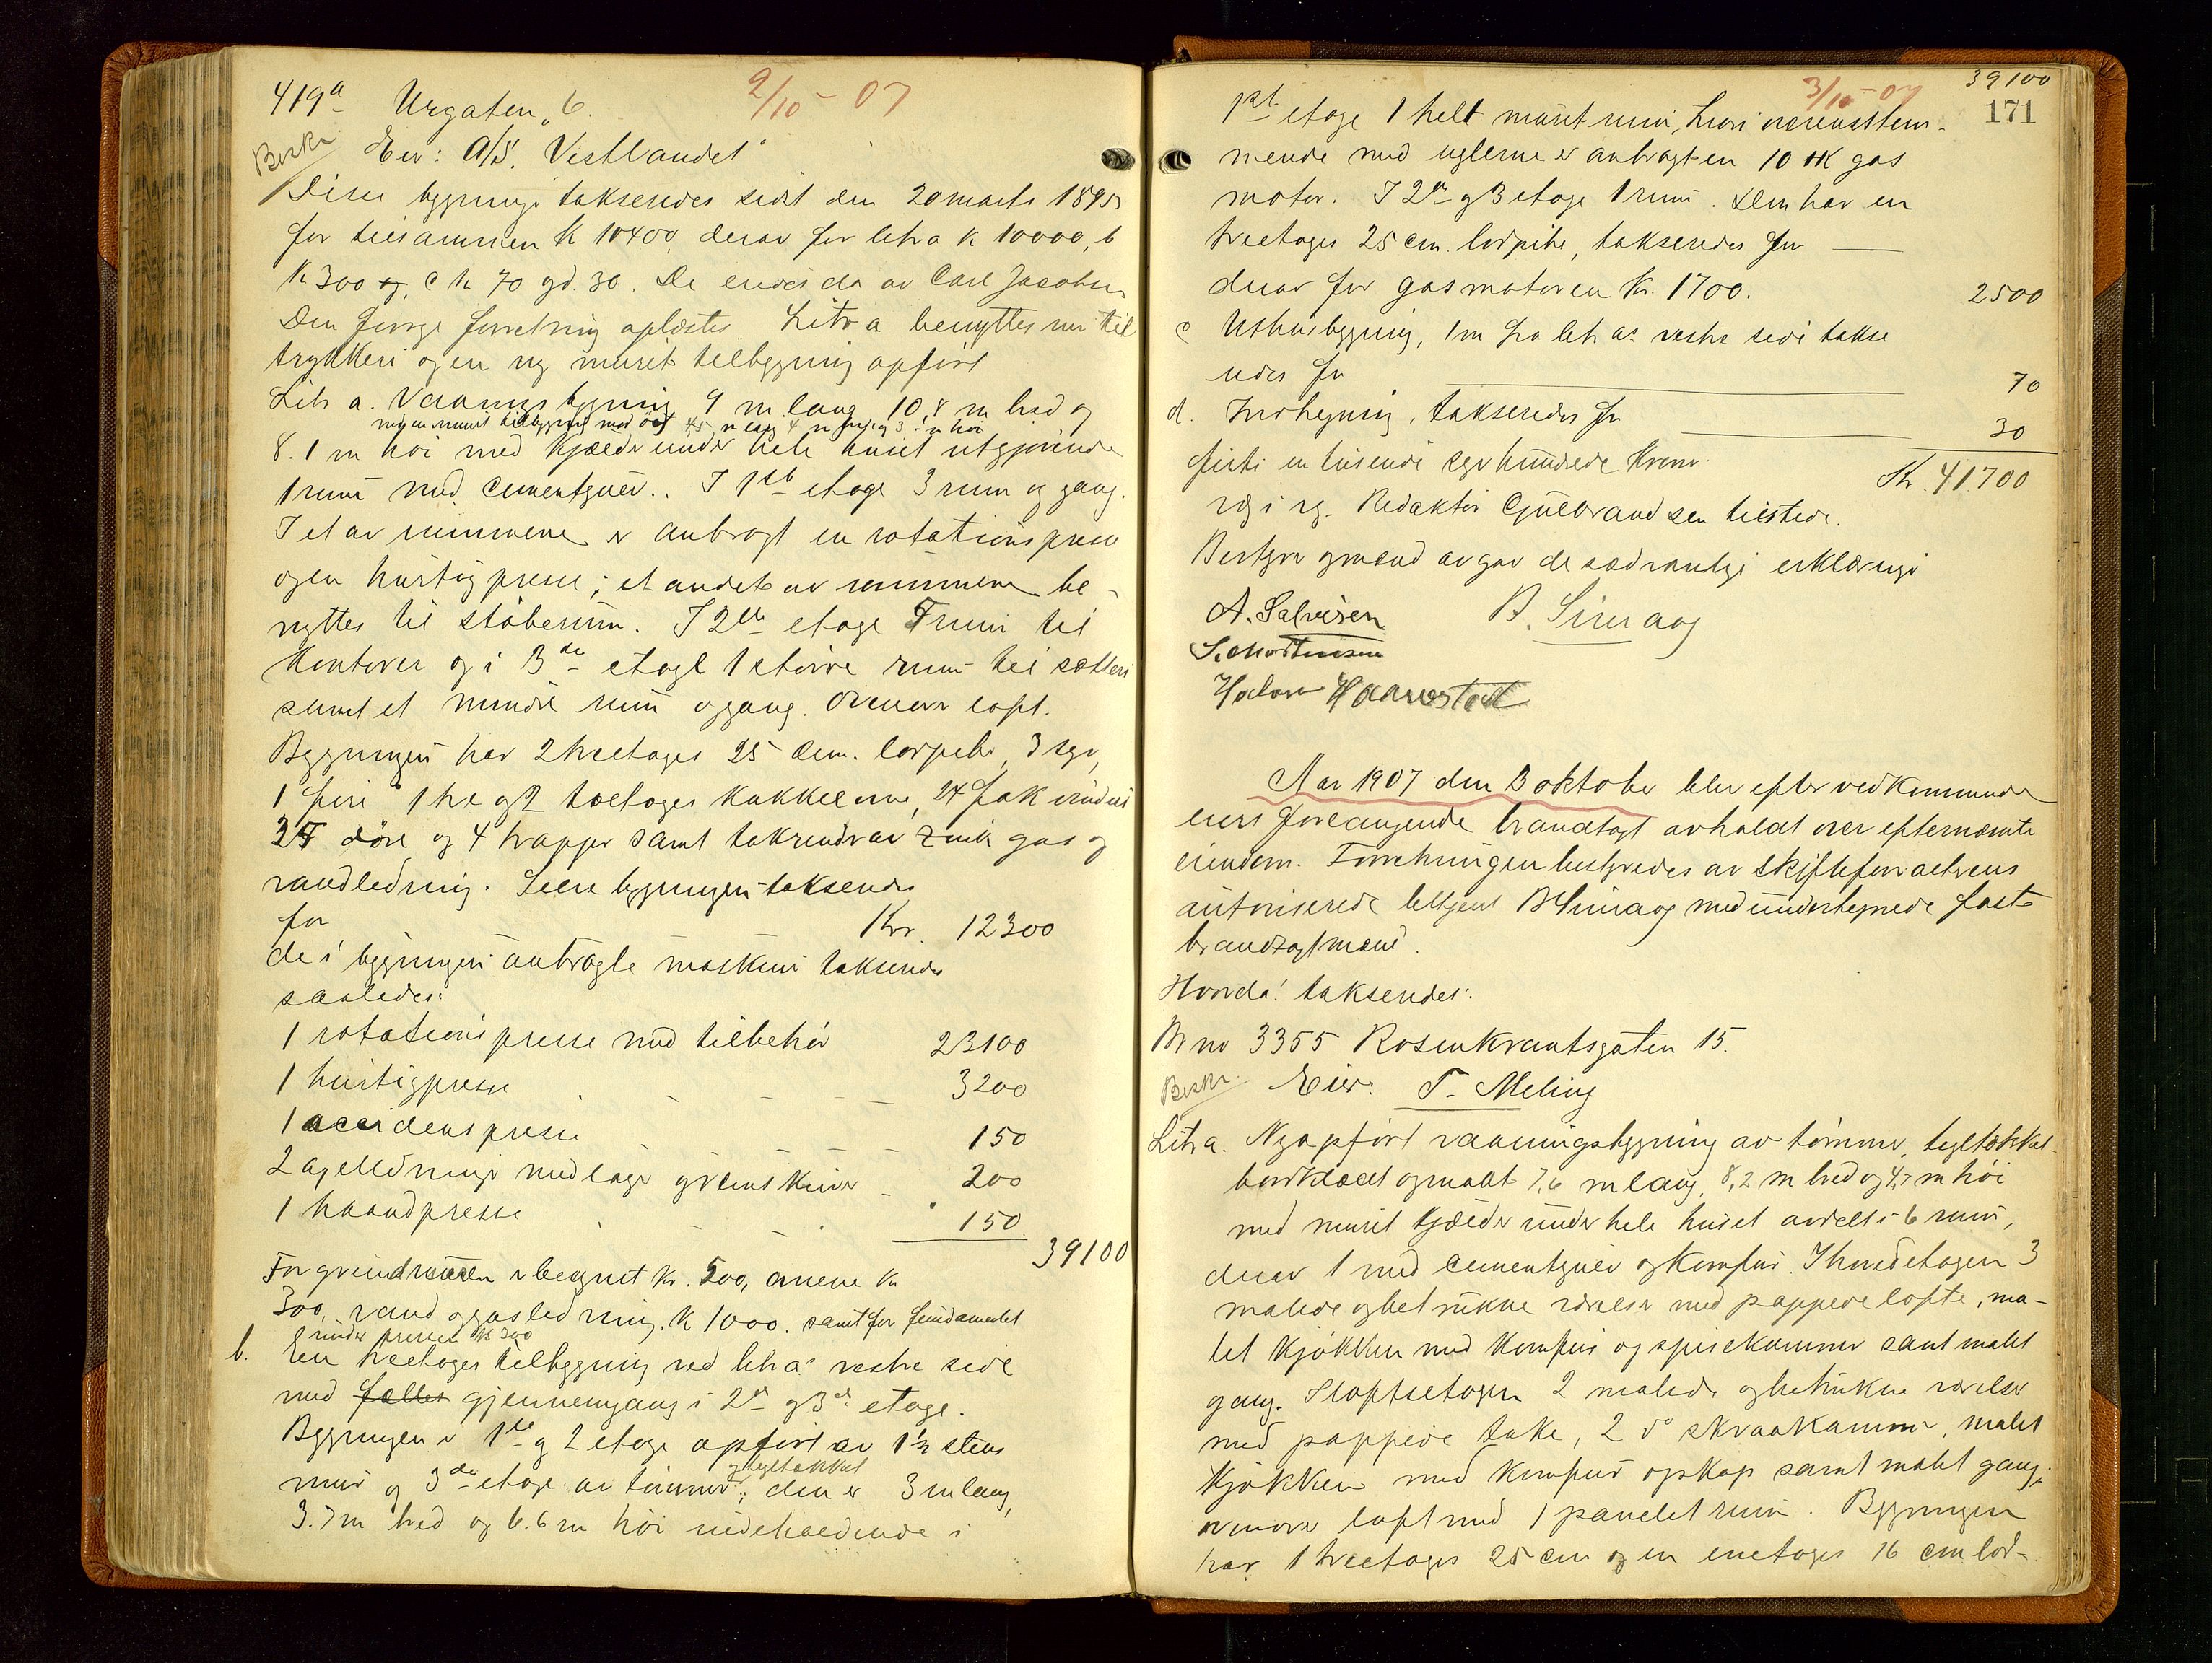 419a Urgaten 6.
2/10 - 07
Beskr Eier: A/S. "Vestlandet"
Disse bygninger takseredes sidst den 20 marts 1895
for tilsammen k 10400, derav for litr a k 10000, b
k 300 og c k 70 og d. 30. De eiedes da av Carl Jacobsen
Den forrige forretning oplæstes. Litr a benyttes nu til
trykkeri og en ny muret tilbygning opført
Litr a. Vaaningsbygning 9 m lang, 10,8 m bred og
8.1 m høi med kjælder under hele huset utgjørende
1 rum med cementgulv. I 1ste etage 3 rum og gang.
I et av rummene er anbragt en rotationspresse
og en hurtigpresse; et andet av rummene be-
nyttes til støberum. I 2den etage rum til
kontorer og i 3die etage 1 større rum til sætteri
samt et mindre rum og gang. Ovenover loft.
Bygningen har 2 treetages 25 cm. lodpiber, 3 
1 fire 1 tre og 2 toetages kakkelovne, 24 fak vinduer
døre og 4 trapper samt takrender av zink gas og
vandledning. Selve bygningen takseredes
for Kr. 12300
de i bygningen anbragte maskiner takseredes
saaledes:
1 rotationspresse med tilbehør 23100
1 hurtigpresse 3200
1 accidenspresse 150
2 axelledninger med lager og remskiver 200
1 haandpresse 150
39100
For grundmuren er beregnet kr. 500, ovnene kr
300, vand og gasledning k 1000. samt for fundamentet
under pressen k 300
b. En treetages tilbygning ved litr a's vestre side
med fælles gjennemgang i 2den og 3die etage.
Bygningen i 1ste og 2 etage opført av 1½ stens
og tegltækket
mur og 3die etage av tømmer; den er 3 m lang,
3.7 m bred og 6.6 m høi indeholdende i
3/10 - 07
39100
171
1ste etage 1 helt muret rum, hvori overensstem-
mende med reglerne er anbragt en 10 HK gas
motor. I 2den og 3 etage 1 rum. Den har en
treetages 25 cm. lodpibe, takseredes for
derav for gasmotoren Kr. 1700. 2500
c Uthusbygning, 1 m fra litr a's vestre side takse
redes for 70
d. Indhegning, takseredes for 30
firti en tusende syv hundrede Kroner. Kr. 41700
Redaktør Gulbrandsen tilstede.
Bestyrer og mænd avgav de sædvanlige erklæringer
A. Salvesen B. Simaog
S. Mortensen
Halvor Haavestad
Aar 1907 den 3 oktober blev efter vedkommende
eiers forlangende brandtagt avholdt over efternævnte
eiendom. Forretningen bestyredes av skifteforvalterens
autoriserede betjent B Simaog med undertegnede faste
brandtagtmænd.
Hvorda: takseredes:
Br no 3355 Rosenkrantsgaten 15.
Beskr. Eier: T. Meling
Litr a. Nyopført vaaningsbygning av tømmer, tegltækket
bordklædt og malt 7,6 m lang, 8,2 m bred og 4,7 m høi
med muret kjælder under hele huset avdelt i 6 rum,
derav 1 med cementgulv og komfur. I hovedetagen 3
malede og betrukne værelser med pappede lofte, ma-
let kjøkken med komfur og spisekammer samt malet
gang. I loftsetagen 2 malede og betrukne værelser
med pappede take, 2 do skraakammer, malet
kjøkken med komfur og skap samt malet gang;
ovenover loft med 1 panelet rum. Bygningen
har 1 treetages 25 cm og en enetages 16 cm lod-